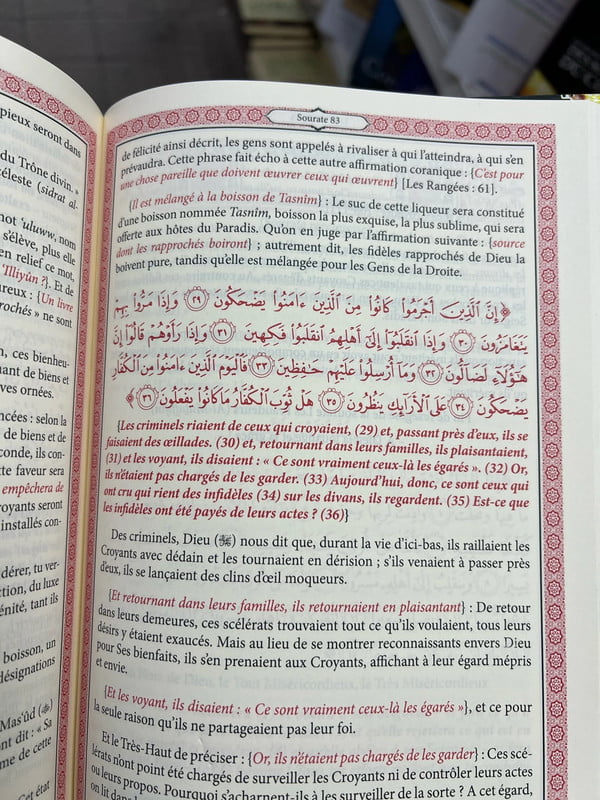 pieux seront dans
du Trône divin. »
céleste (sidrat al-
mot 'uluww, nom
s'élève, plus elle
en relief ce mot,
'Illiyûn ?}. Et de
ureux : {Un livre
rochés » ne sont
n, ces bienheu-
nant de biens et
ves ornées.
ncées : selon la
de biens et de
conde, ils con-
tte faveur sera
empêchera de
royants seront
installés con-
dérer, tu ver-
ction, du luxe
énité, tant ils
boisson, un
désignations
Mas'ûd (ﷺ)
nt dit : « Sa
me de cette
Cet état
Sourate 83
de félicité ainsi décrit, les gens sont appelés à rivaliser à qui l'atteindra, à qui s'en
prévaudra. Cette phrase fait écho à cette autre affirmation coranique : {C'est pour
une chose pareille que doivent œuvrer ceux qui œuvrent} [Les Rangées : 61].
{Il est mélangé à la boisson de Tasnîm} : Le suc de cette liqueur sera constitué
d'une boisson nommée Tasnîm, boisson la plus exquise, la plus sublime, qui sera
offerte aux hôtes du Paradis. Qu'on en juge par l'affirmation suivante : {source
dont les rapprochés boiront} ; autrement dit, les fidèles rapprochés de Dieu la
boivent pure, tandis qu'elle est mélangée pour les Gens de la Droite.
﴿إِنَّ ٱلَّذِينَ أَجْرَمُوا۟ كَانُوا۟ مِنَ ٱلَّذِينَ ءَامَنُوا۟ يَضْحَكُونَ ﴿٢٩﴾ وَإِذَا مَرُّوا۟ بِهِمْ
يَتَغَامَزُونَ ﴿٣٠﴾ وَإِذَا ٱنقَلَبُوٓا۟ إِلَىٰٓ أَهْلِهِمُ ٱنقَلَبُوا۟ فَكِهِينَ ﴿٣١﴾ وَإِذَا رَأَوْهُمْ قَالُوٓا۟ إِنَّ
هَٰٓؤُلَآءِ لَضَآلُّونَ ﴿٣٢﴾ وَمَآ أُرْسِلُوا۟ عَلَيْهِمْ حَٰفِظِينَ ﴿٣٣﴾ فَٱلْيَوْمَ ٱلَّذِينَ ءَامَنُوا۟ مِنَ ٱلْكُفَّارِ
يَضْحَكُونَ ﴿٣٤﴾ عَلَى ٱلْأَرَآئِكِ يَنظُرُونَ ﴿٣٥﴾ هَلْ ثُوِّبَ ٱلْكُفَّارُ مَا كَانُوا۟ يَفْعَلُونَ ﴿٣٦﴾﴾
{Les criminels riaient de ceux qui croyaient, (29) et, passant près d'eux, ils se
faisaient des œillades. (30) et, retournant dans leurs familles, ils plaisantaient,
(31) et les voyant, ils disaient : « Ce sont vraiment ceux-là les égarés ». (32) Or,
ils n'étaient pas chargés de les garder. (33) Aujourd'hui, donc, ce sont ceux qui
ont cru qui rient des infidèles (34) sur les divans, ils regardent. (35) Est-ce que
les infidèles ont été payés de leurs actes ? (36)}
Des criminels, Dieu (ﷻ) nous dit que, durant la vie d'ici-bas, ils raillaient les
Croyants avec dédain et les tournaient en dérision ; s'ils venaient à passer près
d'eux, ils se lançaient des clins d'œil moqueurs.
{Et retournant dans leurs familles, ils retournaient en plaisantant} : De retour
dans leurs demeures, ces scélérats trouvaient tout ce qu'ils voulaient, tous leurs
désirs y étaient exaucés. Mais au lieu de se montrer reconnaissants envers Dieu
pour Ses bienfaits, ils s'en prenaient aux Croyants, affichant à leur égard mépris
et envie.
{Et les voyant, ils disaient : « Ce sont vraiment ceux-là les égarés »}, et ce pour
la seule raison qu'ils ne partageaient pas leur foi.
Et le Très-Haut de préciser : {Or, ils n'étaient pas chargés de les garder} : Ces scé-
lérats n'ont point été chargés de surveiller les Croyants ni de contrôler leurs actes
ou leurs propos. Pourquoi s'acharnent-ils à les surveiller de la sorte ? A cet égard,
on lit dans